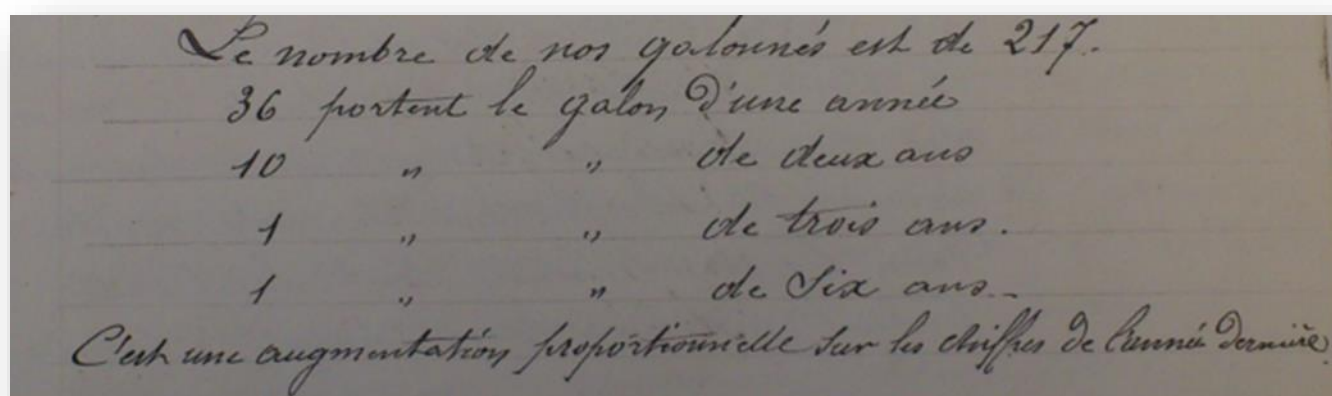 Le nombre de nos galonnés est de 217.
36 portent le galon d'une année
10 " " de deux ans
1 " " de trois ans.
1 " " de Six ans.
C'est une augmentation proportionnelle sur les chiffres de l'année dernière